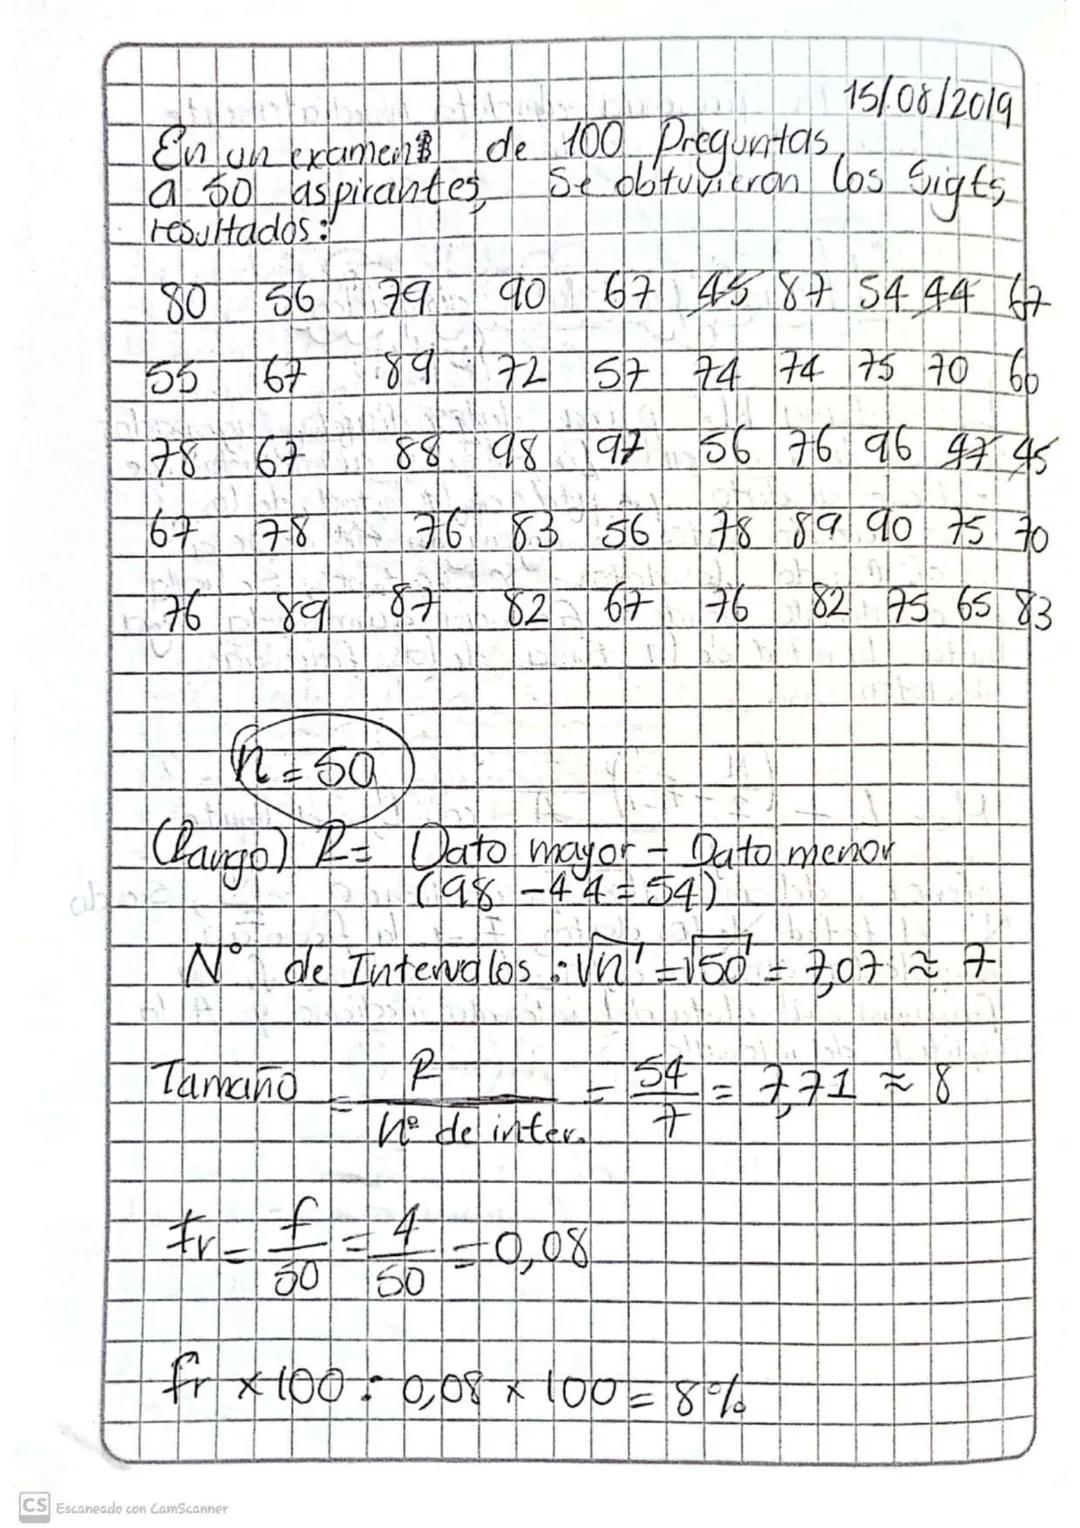 15/08/2019
En un examen de 100 Preguntas
a 50 aspirantes, Se obtuvieron los Sigts
resultados:
80 56 79 90 67 45 87 54 44 67
55 67 89 72 57 74 74 75 70 60
78 67 88 98 97 56 76 96 47 45
67 78 76 83 56 78 89 90 75 70
76 89 87 82 67 76 82 75 65 83
n = 50
(Rango) R = Dato mayor - Dato menor
(98 - 44 = 54)
N° de Intervalos : √n = √50 = 7,07 ≈ 7
Tamaño = R / nº de inter. = 54 / 7 = 7,71 ≈ 8
fr = f / 50 = 4 / 50 = 0,08
fr x 100 : 0,08 x 100 = 8%
CS Escaneado con CamScanner